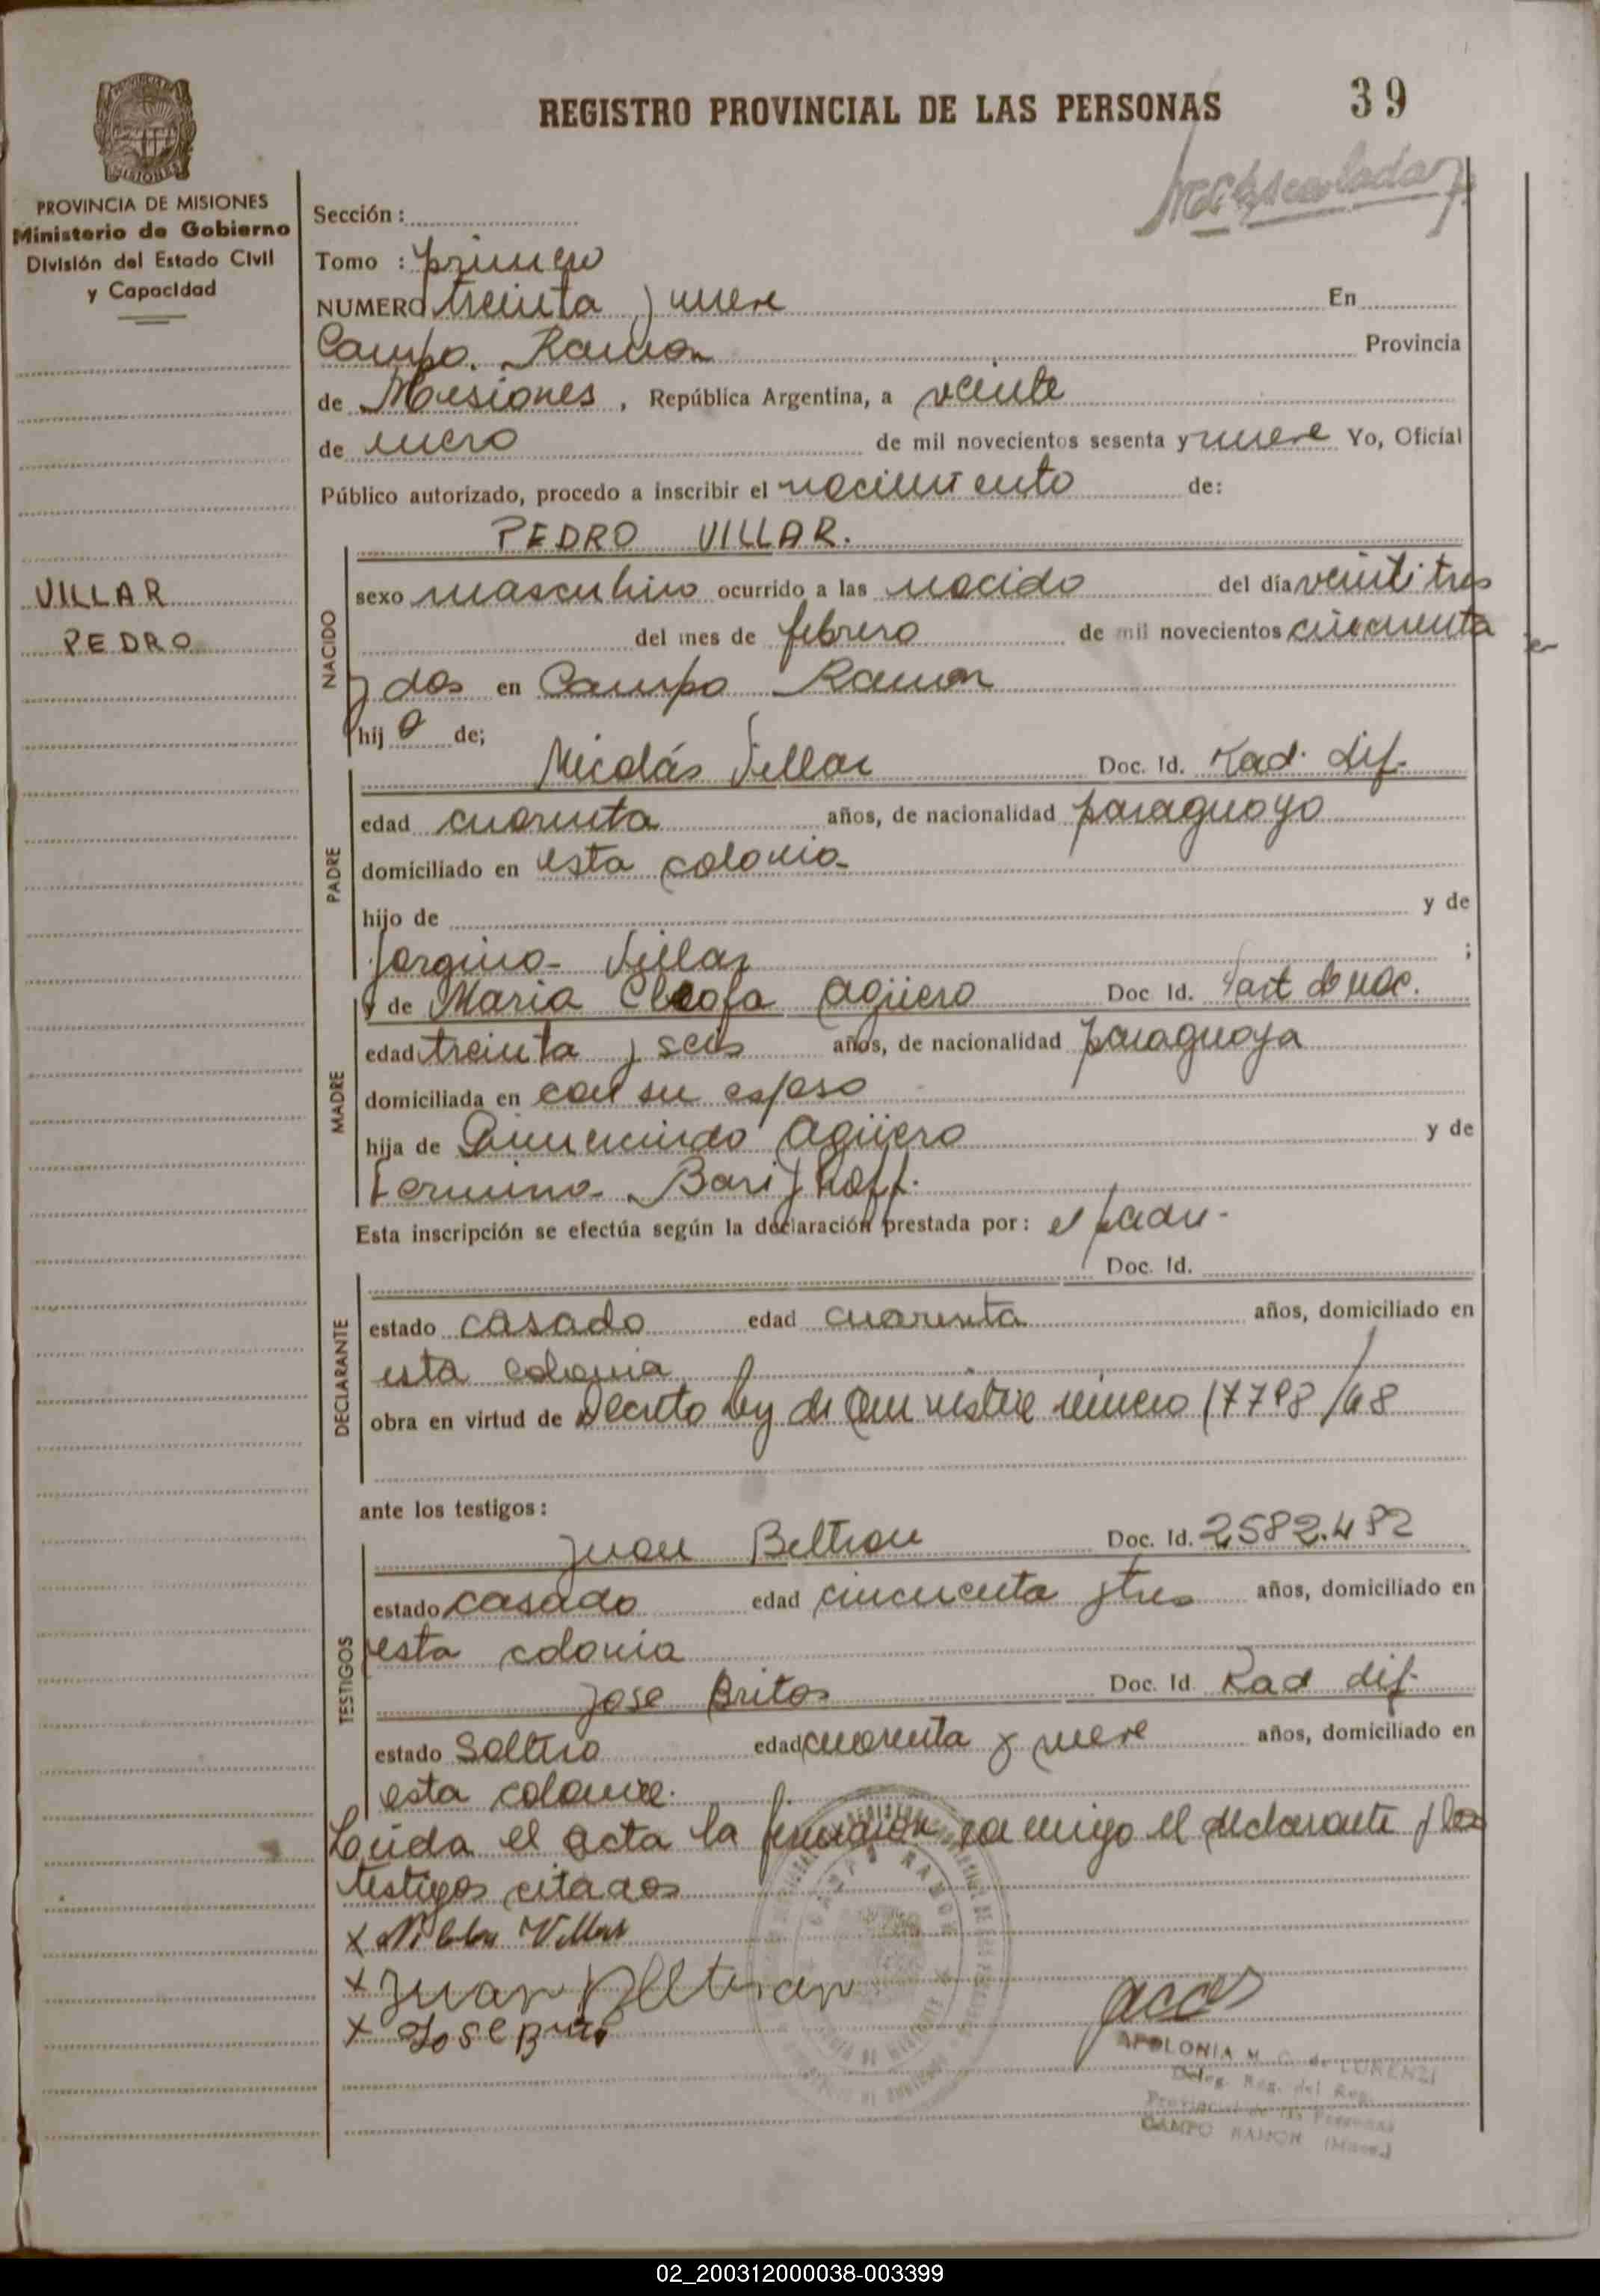 REGISTRO PROVINCIAL DE LAS PERSONAS
39
PROVINCIA DE MISIONES
Ministerio de Gobierno
División del Estado Civil
y Capacidad
VILLAR
PEDRO
Sección :
Tomo : primero
NUMERO treinta y nueve En
Campo Ramon Provincia
de Misiones, República Argentina, a veinte
de enero de mil novecientos sesenta y nueve Yo, Oficial
Público autorizado, procedo a inscribir el nacimiento de:
PEDRO VILLAR.
NACIDO
sexo masculino ocurrido a las nacido del día veintitres
del mes de febrero de mil novecientos cincuenta
y dos en Campo Ramon
hijo de;
PADRE
Nicolás Villar Doc. Id. Rad. dif.
edad cuarenta años, de nacionalidad paraguayo
domiciliado en esta colonia
hijo de y de
Villar ;
MADRE
y de Maria Cleofa Agüero Doc Id. Part de nac.
edad treinta y seis años, de nacionalidad paraguaya
domiciliada en con su esposo
hija de Agüero y de
Esta inscripción se efectúa según la declaración prestada por: el padre-
Doc. Id.
DECLARANTE
estado casado edad cuarenta años, domiciliado en
esta colonia
obra en virtud de Decreto Ley de Amnistia numero 17798/48
ante los testigos:
TESTIGOS
Juan Beltran Doc. Id. 2582.482
estado casado edad cincuenta y tres años, domiciliado en
esta colonia
Jose Britos Doc. Id. Rad dif.
estado Soltero edad cuarenta y nueve años, domiciliado en
esta colonia.
Leida el acta la firmaron conmigo el declarante y los
testigos citados
x Villar
x Juan Beltran
x Jose
CAMPO RAMON
APOLONIA M. C. de LORENZI
Deleg. Reg. del Reg.
Provincial de las Personas
CAMPO RAMON (Mnes.)
02_200312000038-003399